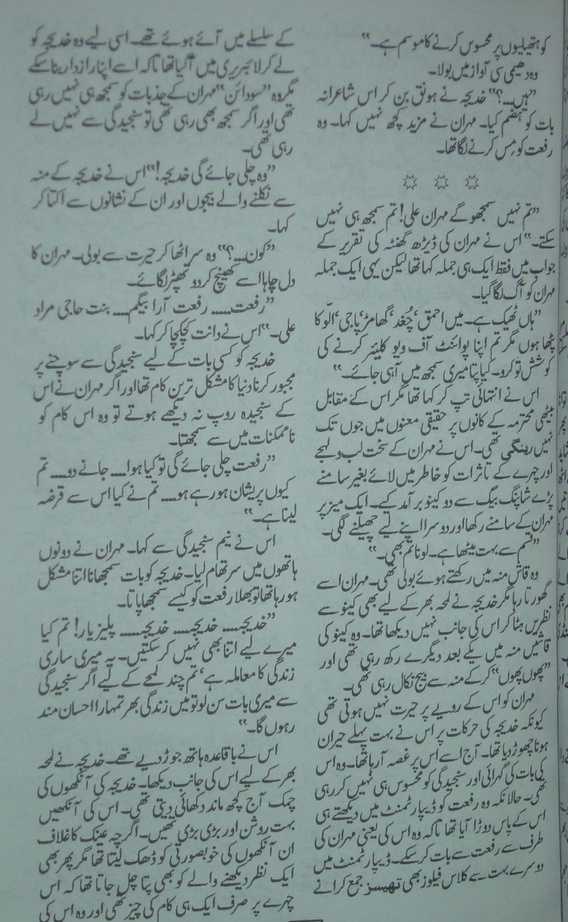 کو ہتھیلیوں پر محسوس کرنے کا موسم ہے۔“
وہ دھیمی سی آواز میں بولا۔
”ہیں....؟“ خدیجہ نے ہونق بن کر اس شاعرانہ
بات کو ہضم کیا۔ مہران نے مزید کچھ نہیں کہا۔ وہ
رفعت کو مس کرنے لگا تھا۔
☆ ☆ ☆
”تم نہیں سمجھو گے مہران علی! تم سمجھ ہی نہیں
سکتے۔“ اس نے مہران کی ڈیڑھ گھنٹہ کی تقریر کے
جواب میں فقط ایک ہی جملہ کہا تھا لیکن یہی ایک جملہ
مہران کو آگ لگا گیا۔
”ہاں ٹھیک ہے۔ میں احمق، چغد، گھامڑ، پاجی، الو کا
پٹھا ہوں مگر تم اپنا پوائنٹ آف ویو کلیئر کرنے کی
کوشش تو کرو۔ کیا پتا میری سمجھ میں آ ہی جائے۔“
اس نے انتہائی تپ کر کہا تھا مگر اس کے مقابل
بیٹھی محترمہ کے کانوں پر حقیقی معنوں میں جوں تک
نہیں رینگی تھی۔ اس نے مہران کے سخت لب و لہجے
اور چہرے کے تاثرات کو خاطر میں لائے بغیر سامنے
پڑے شاپنگ بیگ سے دو کینو برآمد کیے۔ ایک میز پر
مہران کے سامنے رکھا اور دوسرا اپنے لیے چھیلنے لگی۔
”قسم سے بہت میٹھا ہے۔ لو نا تم بھی۔“
وہ قاش منہ میں رکھتے ہوئے بولی تھی۔ مہران اسے
گھورتا رہا مگر خدیجہ نے لمحہ بھر کے لیے بھی کینو سے
نظریں ہٹا کر اس کی جانب نہیں دیکھا تھا۔ وہ کینو کی
قاشیں منہ میں یکے بعد دیگرے رکھ رہی تھی اور
”پھوں پھوں“ کر کے منہ سے بیج نکال رہی تھی۔
مہران کو اس کے رویے پر حیرت نہیں ہوتی تھی
کیونکہ خدیجہ کی حرکات پر اس نے بہت پہلے حیران
ہونا چھوڑ دیا تھا۔ آج اسے اس پر غصہ آ رہا تھا۔ وہ اس
کی بات کی گہرائی اور سنجیدگی کو محسوس ہی نہیں کر رہی
تھی۔ حالانکہ وہ رفعت کو ڈیپارٹمنٹ میں دیکھتے ہی
اس کے پاس دوڑا آیا تھا تاکہ وہ اس کی یعنی مہران کی
طرف سے رفعت سے بات کر سکے۔ ڈیپارٹمنٹ میں
دوسرے بہت سے کلاس فیلوز بھی تھیسز جمع کرانے
کے سلسلے میں آئے ہوئے تھے۔ اسی لیے وہ خدیجہ کو
لے کر لائبریری میں آ گیا تھا تاکہ اسے اپنا رازدار بنا سکے
مگر وہ ”سودائن“ مہران کے جذبات کو سمجھ ہی نہیں رہی
تھی اور اگر سمجھ بھی رہی تھی تو سنجیدگی سے نہیں لے
رہی تھی۔
”وہ چلی جائے گی خدیجہ!“ اس نے خدیجہ کے منہ
سے نکلنے والے بیجوں اور ان کے نشانوں سے اکتا کر
کہا۔
”کون....؟“ وہ سر اٹھا کر حیرت سے بولی۔ مہران کا
دل چاہا اسے کھینچ کر دو تھپڑ لگائے۔
”رفعت..... رفعت آرا بیگم.... بنت حاجی مراد
علی۔“ اس نے دانت کچکچا کر کہا۔
خدیجہ کو کسی بات کے لیے سنجیدگی سے سوچنے پر
مجبور کرنا دنیا کا مشکل ترین کام تھا اور اگر مہران نے اس
کے سنجیدہ روپ نہ دیکھے ہوتے تو وہ اس کام کو
ناممکنات میں سے سمجھتا۔
”رفعت چلی جائے گی تو کیا ہوا.... جانے دو.... تم
کیوں پریشان ہو رہے ہو.... تم نے کیا اس سے قرضہ
لینا ہے۔“
اس نے نیم سنجیدگی سے کہا۔ مہران نے دونوں
ہاتھوں میں سر تھام لیا۔ خدیجہ کو بات سمجھانا اتنا مشکل
ہو رہا تھا تو بھلا رفعت کو کیسے سمجھا پاتا۔
”خدیجہ..... خدیجہ..... خدیجہ..... پلیز یار! تم کیا
میرے لیے اتنا بھی نہیں کر سکتیں۔ یہ میری ساری
زندگی کا معاملہ ہے، تم چند لمحے کے لیے اگر سنجیدگی
سے میری بات سن لو تو میں زندگی بھر تمہارا احسان مند
رہوں گا۔“
اس نے باقاعدہ ہاتھ جوڑ دیے تھے۔ خدیجہ نے لمحہ
بھر کے لیے اس کی جانب دیکھا۔ خدیجہ کی آنکھوں کی
چمک آج کچھ ماند دکھائی دیتی تھی۔ اس کی آنکھیں
بہت روشن اور بڑی بڑی تھیں۔ اگرچہ عینک کا غلاف
ان آنکھوں کی خوبصورتی کو ڈھک لیتا تھا مگر پھر بھی
ایک نظر دیکھنے والے کو بھی پتا چل جاتا تھا کہ اس
چہرے پر صرف ایک ہی کام کی چیز تھی اور وہ اس کی